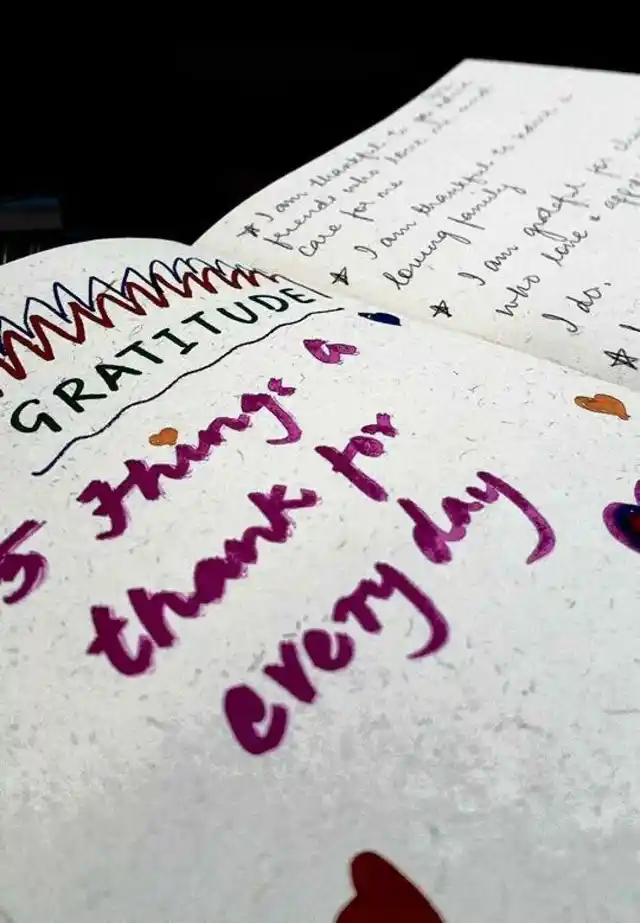 GRATITUDE
5 Things a
thank for
every day
★ I am thankful to
friends who love me and
care for me
★ I am thankful to have a
loving family
★ I am grateful for
who love &
I do.
★ I